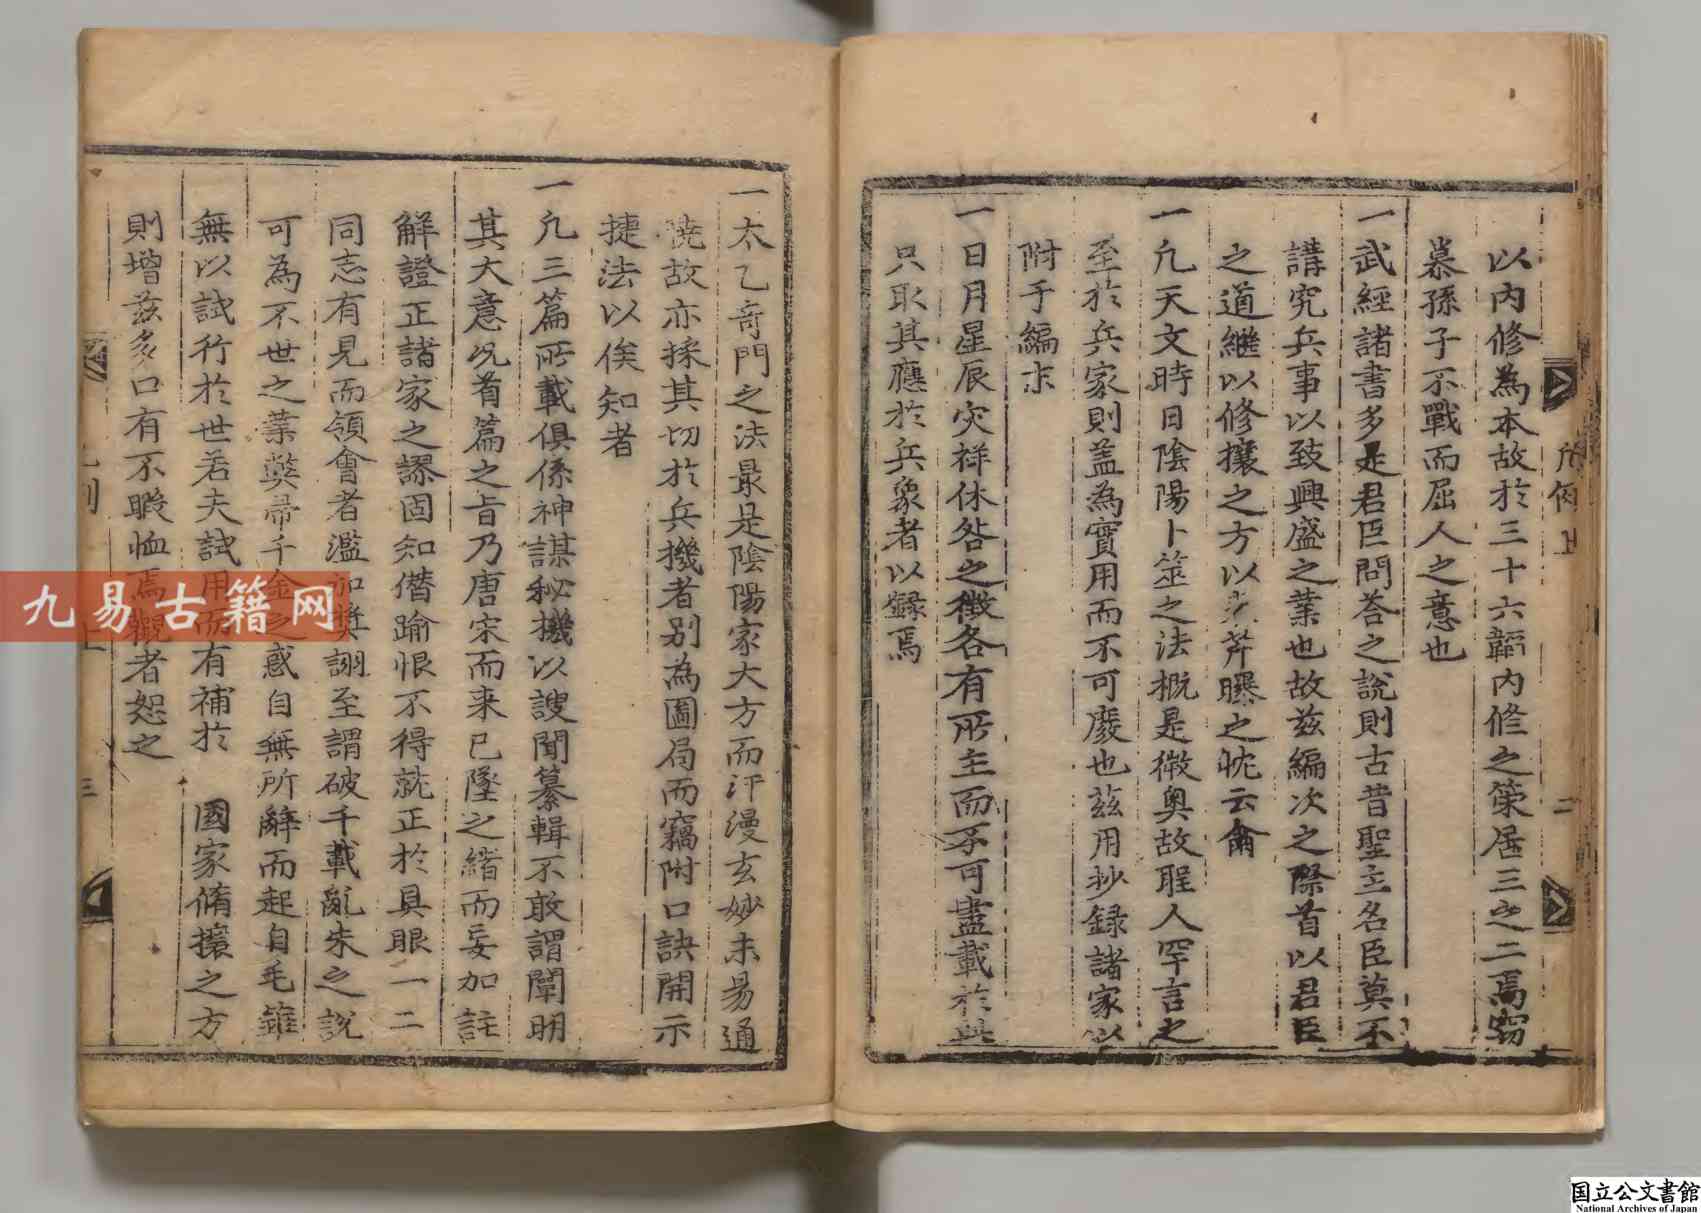 以内修為本故於三十六韜内修之策居三之二焉窃
慕孫子不戰而屈人之意也
一武經諸書多是君臣問答之說則古昔聖主名臣莫不
講究兵事以致興盛之業也故兹編次之際首以君臣
之道繼以修攘之方以芹曝之忱云爾
一凡天文時日陰陽卜筮之法概是微奥故聖人罕言之
至於兵家則盖為實用而不可廢也兹用抄錄諸家以
附于編末
一日月星辰灾祥休咎之徵各有所主而不可盡載於
只取其應於兵象者以錄焉
凡例上
二
一太乙奇門之法最是陰陽家大方而汗漫玄妙未易通
曉故亦採其切於兵機者别為圖局而竊附口訣開示
捷法以俟知者
一凡三篇所載俱係神謀秘機以謏聞纂輯不敢謂闡明
其大意况首篇之旨乃唐宋而来已墜之緒而妄加註
解證正諸家之謬固知僭踰恨不得就正於具眼一二
同志有見而領會者濫加奬詡至謂破千載亂朱之說
可為不世之業弊帚千金之惑自無所辭而起自毛錐
無以試行於世若夫試用而有補於 國家脩攘之方
則增兹多口有不暇恤焉觀者恕之
三
九易古籍网
国立公文書館
National Archives of Japan